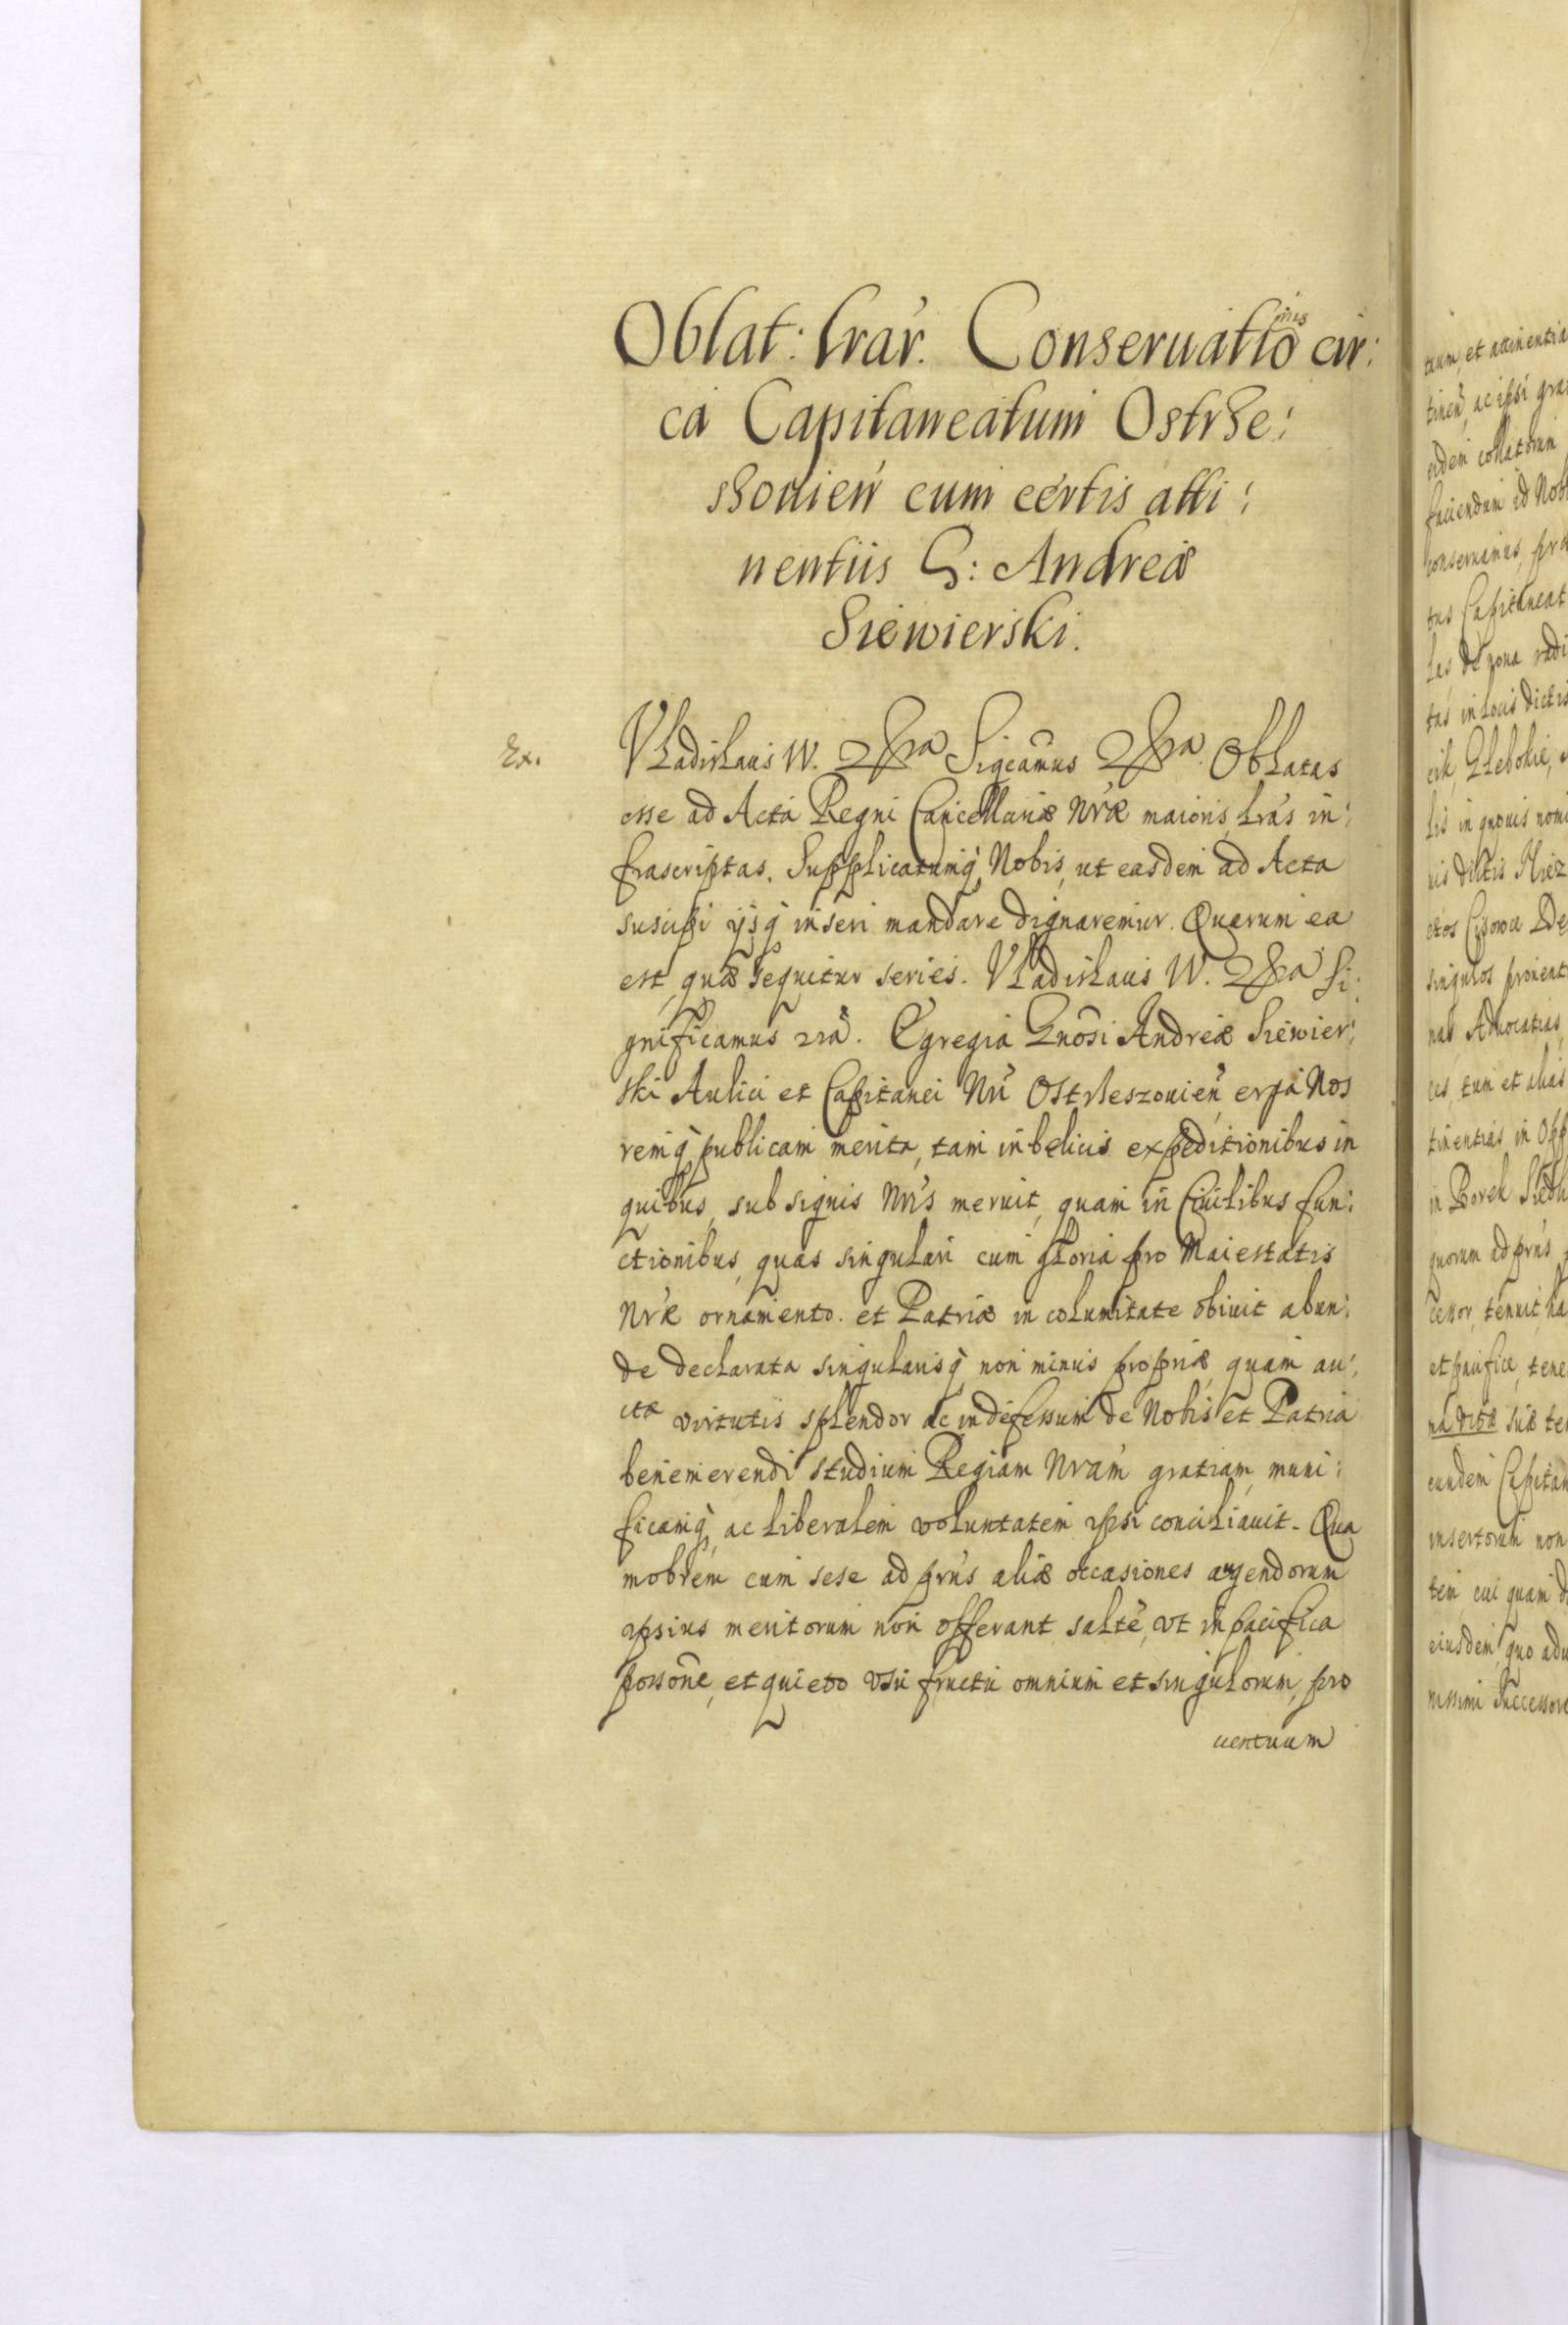 Oblat: Lrar̃. Conseruatiõnis cir:
ca Capitaneatum Ostrse:
szouien̄ cum certis atti:
nentiis G: Andreæ
Siewierski.
Ex.
Vladislaus IV. &ra Sigcamus &ra. Oblatas
esse ad Acta Regni Cancellariæ Nr̃æ maioris lrãs in:
frascriptas. Supplicatumq; Nobis, ut easdem ad Acta
suscipi ijsq; inseri mandare dignaremur. Quarum ea
est, quæ sequitur series. Vladislaus IV. &ra Si:
gnificamus &ra. Egregia Gnõsi Andreæ Siewier:
ski Aulici et Capitanei Nri Ostrzeszouien̄, erga Nos
remq; publicam merita, tam in belicis expeditionibus in
quibus, sub signis Nrĩs meruit, quam in Ciuilibus fun:
ctionibus, quas singulari cum gloria pro Maiestatis
Nr̃æ ornamento. et Patriæ incolumitate obiuit abun:
de declarata singularisq; non minus propriæ, quam au:
itæ virtutis splendor ac indefessum de Nobis et Patria
benemerendi studium Regiam Nram̃ gratiam, muni:
ficamq; ac liberalem voluntatem ipsi conciliauit. Qua
mobrem cum sese ad prñs aliæ occasiones augendorum
ipsius meritorum non offerant, saltẽ, vt in pacifica
possoñe, et quieto vsu fructu omnium et singulorum, pro
uentuum
et attinentia
tinen̄, ac ipsi
eidem collatorum
faciendum id
conseruamus,
tus Capitaneat
tas in locis dictis
singulos prouent
Aduocatias,
tum et alias
tinentias in
in Borek
quorum ad prñs
tenuit
et pacifice, tene
vitæ suæ
eundem Capitan
insertorum non
cui quam
eiusdem, quo
successore